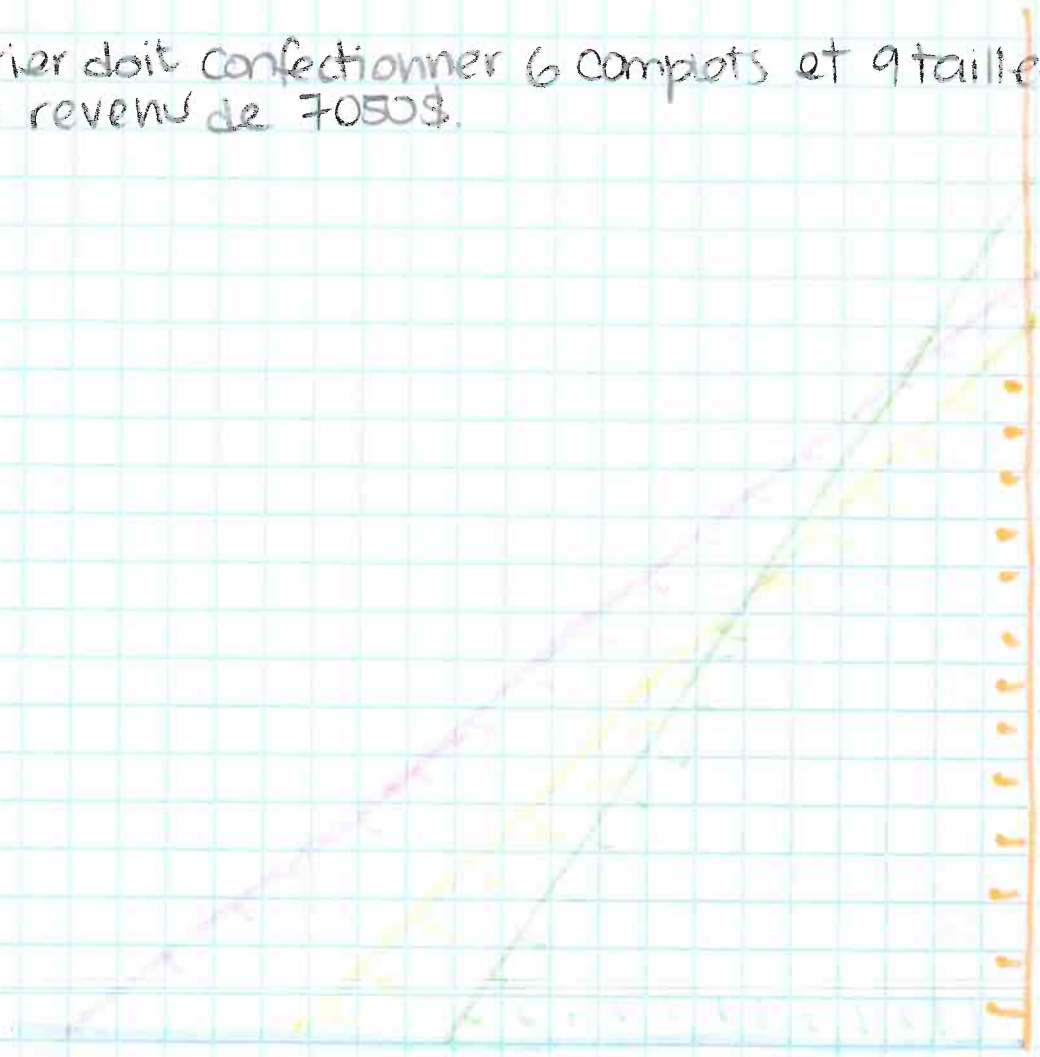 ier doit confectionner 6 complots et 9 taille
revenu de 7050$.